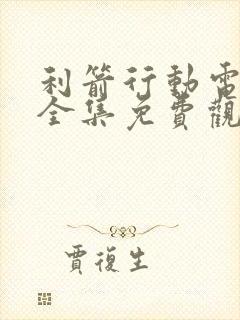 利箭行動電
全集免費觀
賈復生